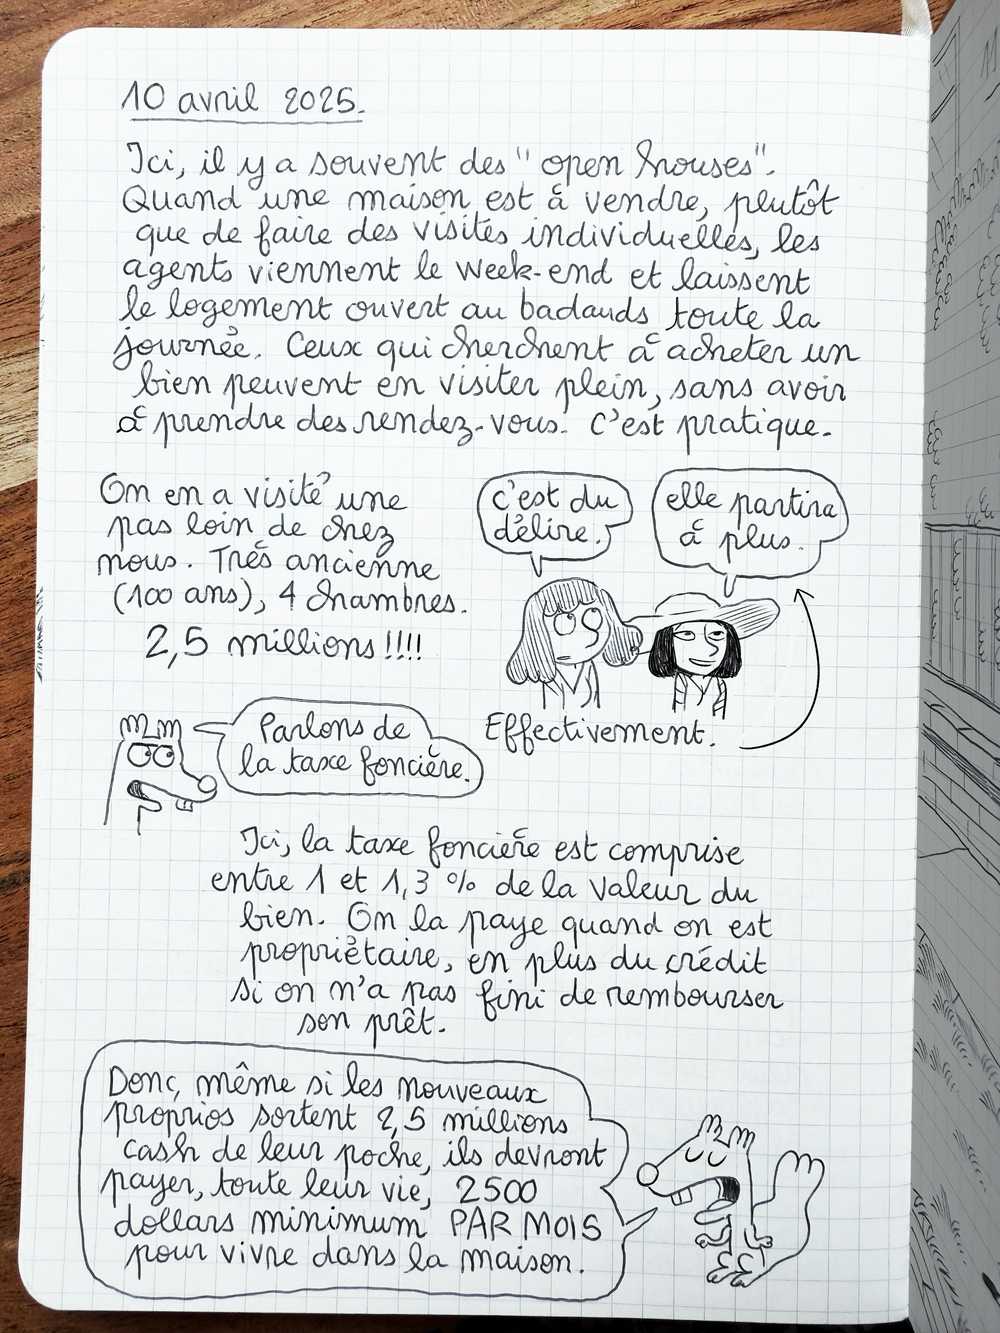 10 avril 2025.
Ici, il y a souvent des "open houses".
Quand une maison est à vendre, plutôt
que de faire des visites individuelles, les
agents viennent le week-end et laissent
le logement ouvert au badauds toute la
journée. Ceux qui cherchent à acheter un
bien peuvent en visiter plein, sans avoir
à prendre des rendez-vous. C'est pratique.
On en a visité une
pas loin de chez
nous. Très ancienne
(100 ans), 4 chambres.
2,5 millions !!!!
c'est du
délire.
elle partira
à plus.
Effectivement.
Parlons de
la taxe foncière.
Ici, la taxe foncière est comprise
entre 1 et 1,3 % de la valeur du
bien. On la paye quand on est
propriétaire, en plus du crédit
si on n'a pas fini de rembourser
son prêt.
Donc, même si les nouveaux
proprios sortent 2,5 millions
cash de leur poche, ils devront
payer, toute leur vie, 2500
dollars minimum PAR MOIS
pour vivre dans la maison.